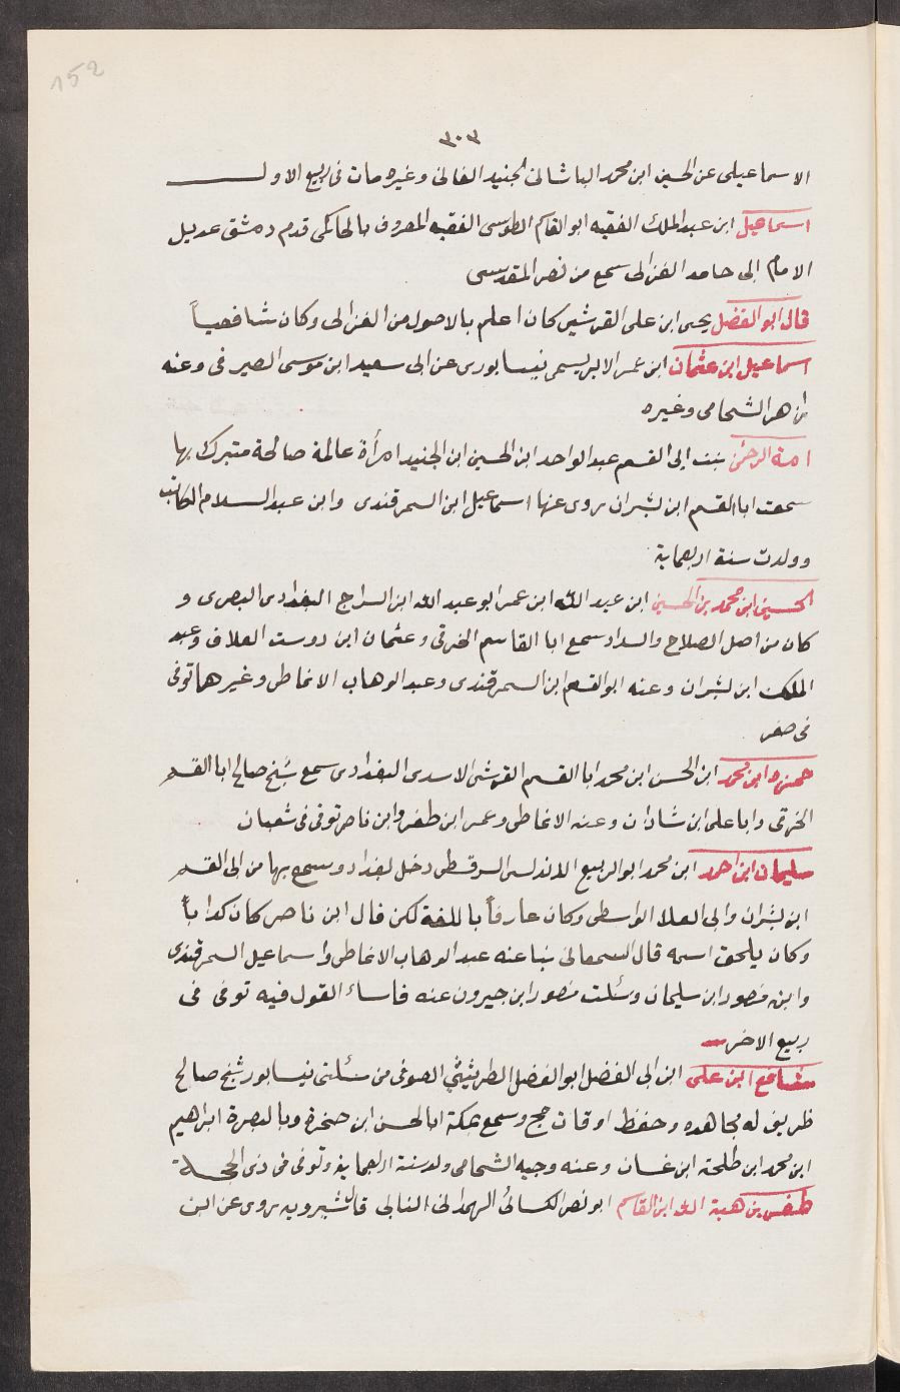 152
٣٠٣
الاسماعيلى عن الحسين ابن محمد الباشانى لجنيد الغانى وغيره مات فى ربيع الاول
اسماعيل ابن عبد الملك الفقيه ابو القاسم الطوسى الفقيه المعروف بالحاكمى قدم دمشق عديل
الامام الى حامد الغزالى سمع من نصر المقدسى
قال ابو الفضل يحيى ابن على القرشى كان اعلم بالاصول من الغزالى وكان شافعياً
اسماعيل ابن عثمان ابن عمر الابريسمى نيسابورى عن ابى سعيد ابن موسى الصيرفى وعنه
زاهر الشحامى وغيره
امة الرحمن بنت ابى القسم عبد الواحد ابن الحسين ابن الجنيد امرأة عالمة صالحة متبرك بها
سمعت ابا القسم ابن بشران روى عنها اسماعيل ابن السمرقندى وابن عبد السلام الكاتب
وولدت سنة اربعماية
الحسين ابن محمد بن الحسين ابن عبد الله ابن عمر ابو عبد الله ابن السراج البغدادى البصرى و
كان من اصل الصلاح والسداد سمع ابا القاسم الخرقى وعثمان ابن دوست العلاف وعبد
الملك ابن بشران وعنه ابو القسم ابن السمرقندى وعبد الوهاب الانماطى وغيرهما توفى
فى صفر
حمزه ابن محمد ابن الحسن ابن محمد ابا القسم القرشى الاسدى البغدادى سمع شيخ صالح ابا القسم
الخرقى وابا على ابن شادان وعنه الانماطى وعمر ابن ظفر وابن ناصر توفى فى شعبان
سليمان ابن احمد ابن محمد ابو الربيع الاندلسى السرقسطى دخل بغداد وسمع بها من ابى القسم
ابن بشران وابى العلا الواسطى وكان عارفاً باللغة لكن قال ابن ناصر كان كداباً
وكان يلحق اسمه قال السمعانى نبا عنه عبد الوهاب الانماطى واسماعيل السمرقندى
وابنه منصور ابن سليمان وسئلت منصور ابن جيرون عنه فاساء القول فيه توفى فى
ربيع الاخر
شافع ابن على ابن ابى الفضل ابو الفضل الطريثيثى الصوفى من سئلتى نيسابور شيخ صالح
ظريف له مجاهده وحفظ اوقات حج وسمع بمكة ابا الحسن ابن صخرة وبالبصرة ابراهيم
ابن محمد ابن طلحة ابن غسان وعنه وجيه الشحامى ولد سنة اربعماية وتوفى فى ذى الحجة
ظفر بن هبة الله ابن القاسم ابو نصر الكسائى الهمدانى النابى قال شيرويه روى عن ابن